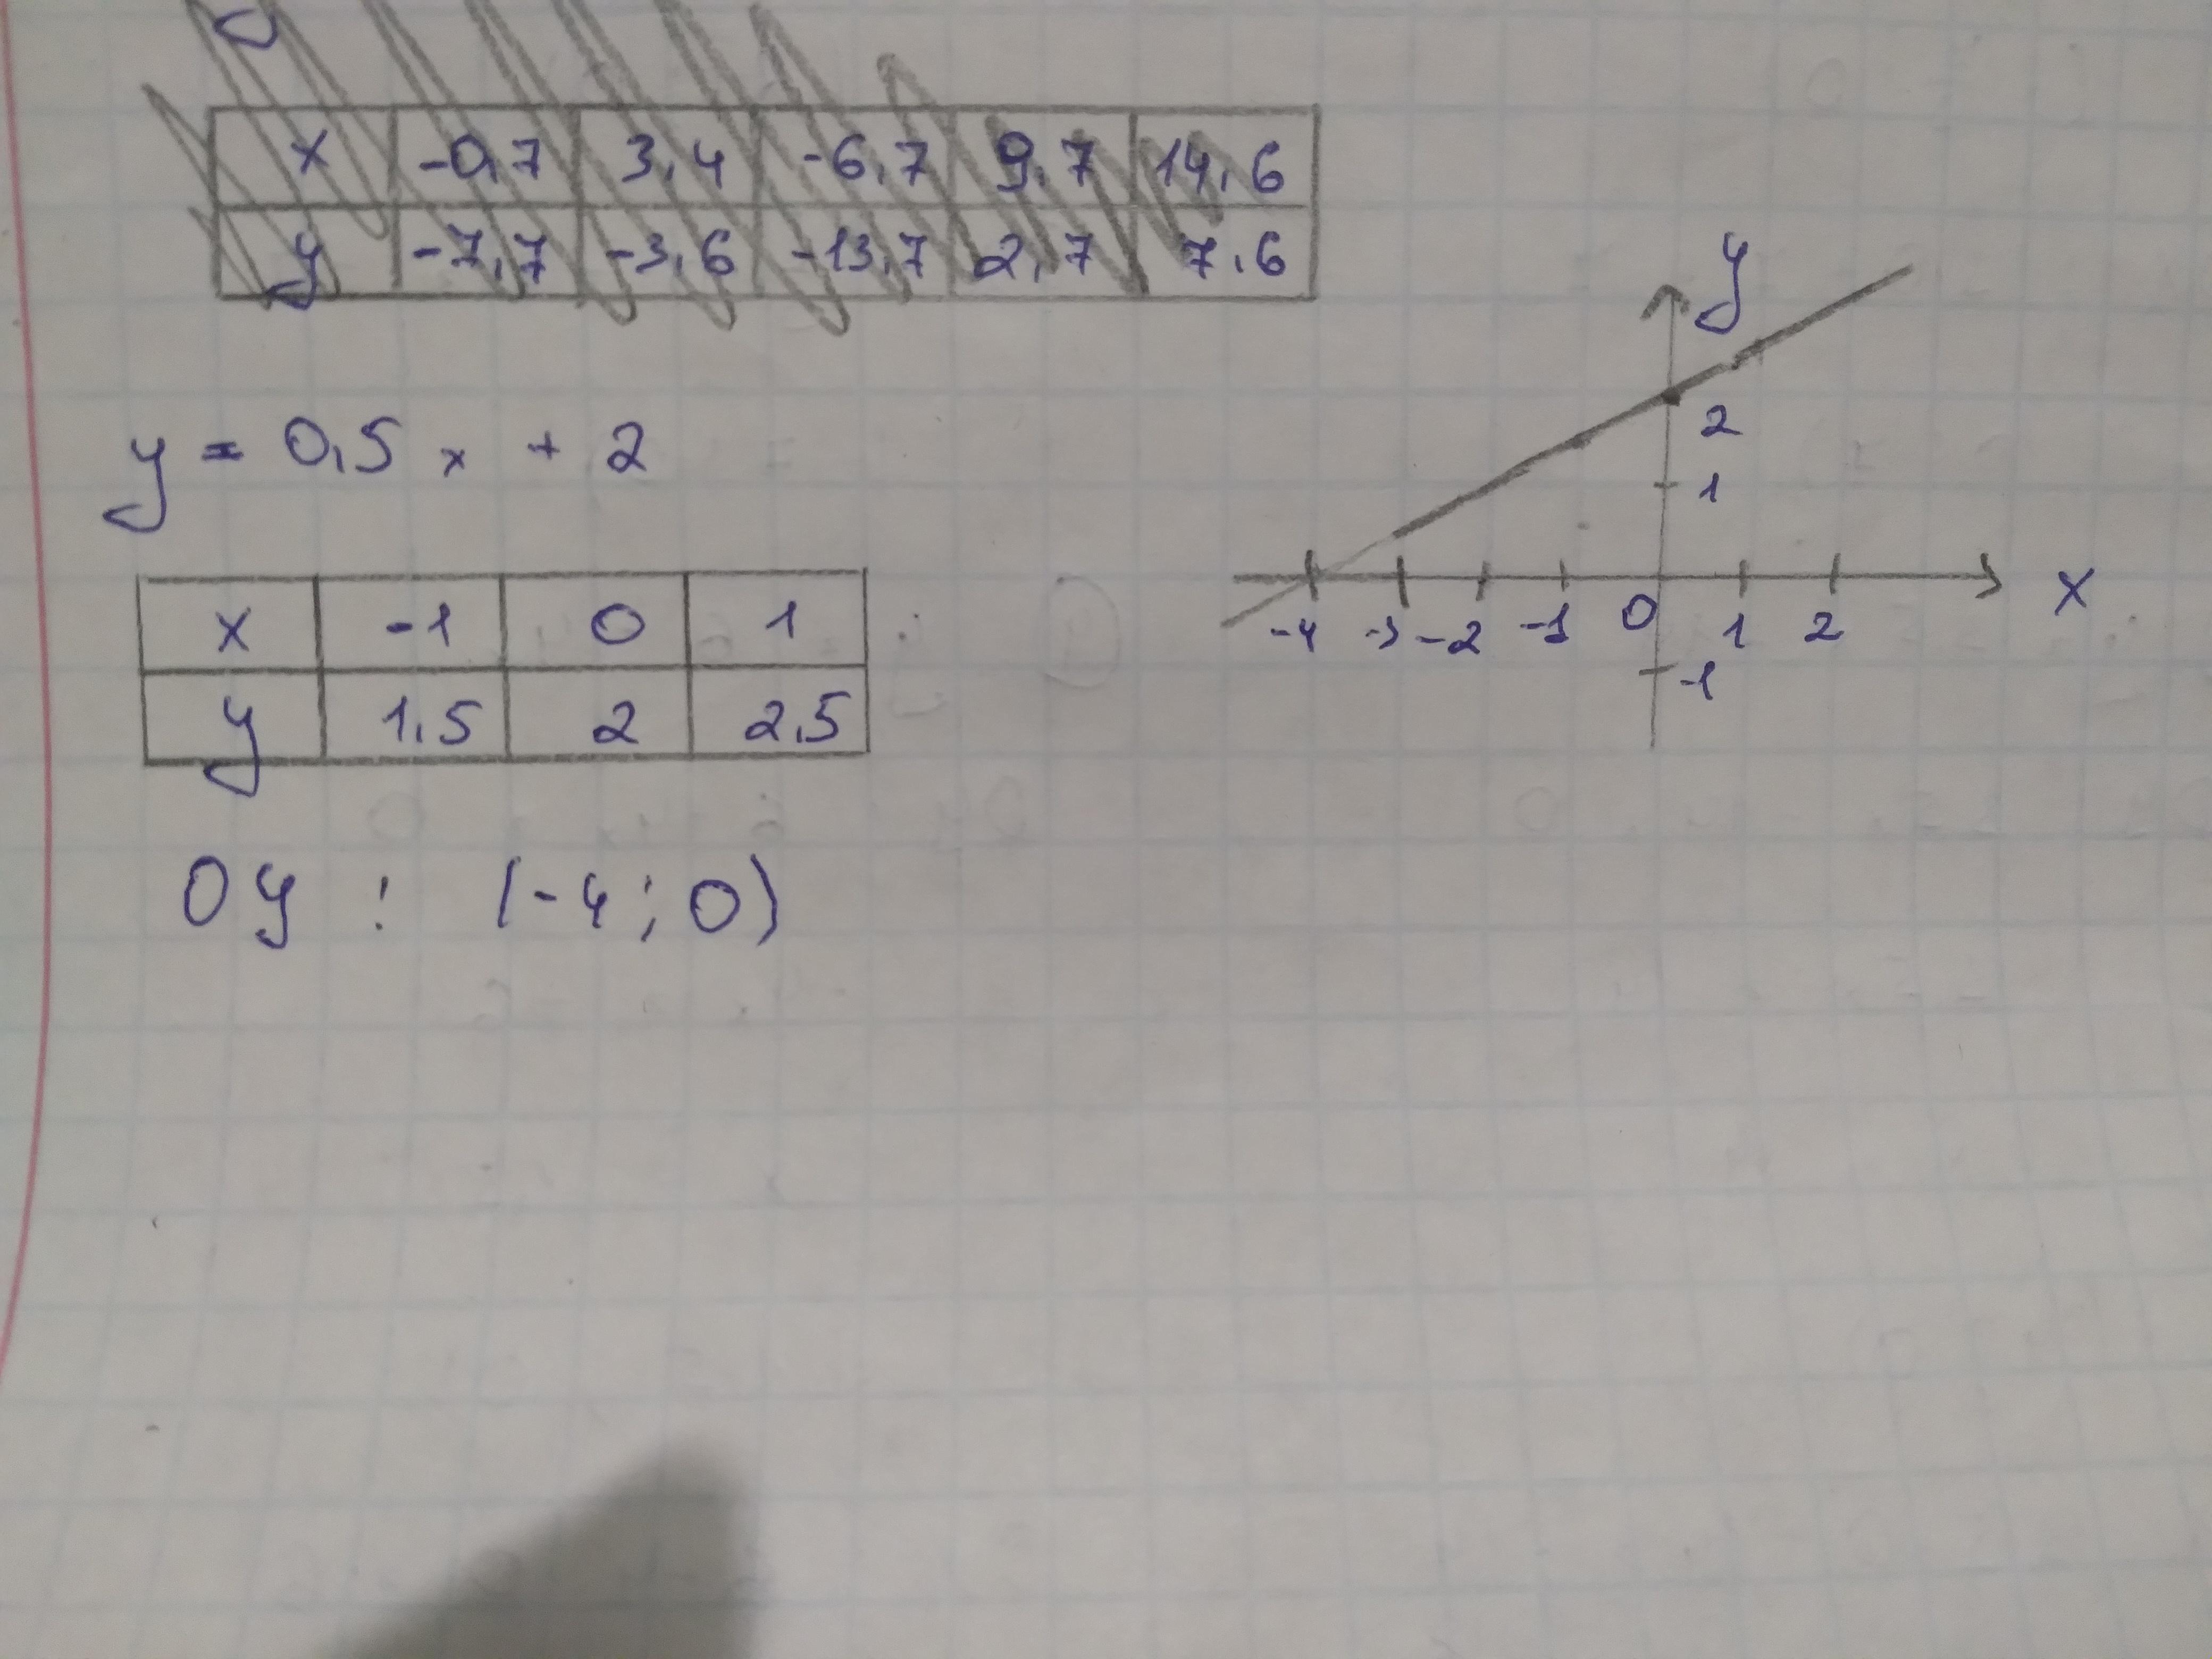 x -0,7 3,4 -6,7 9,7 14,6
y -7,7 -3,6 -13,7 2,7 7,6
y = 0,5x + 2
x -1 0 1
y 1,5 2 2,5
Oy : (-4; 0)
y
2
1
-4 -3 -2 -1 0 1 2 x
-1